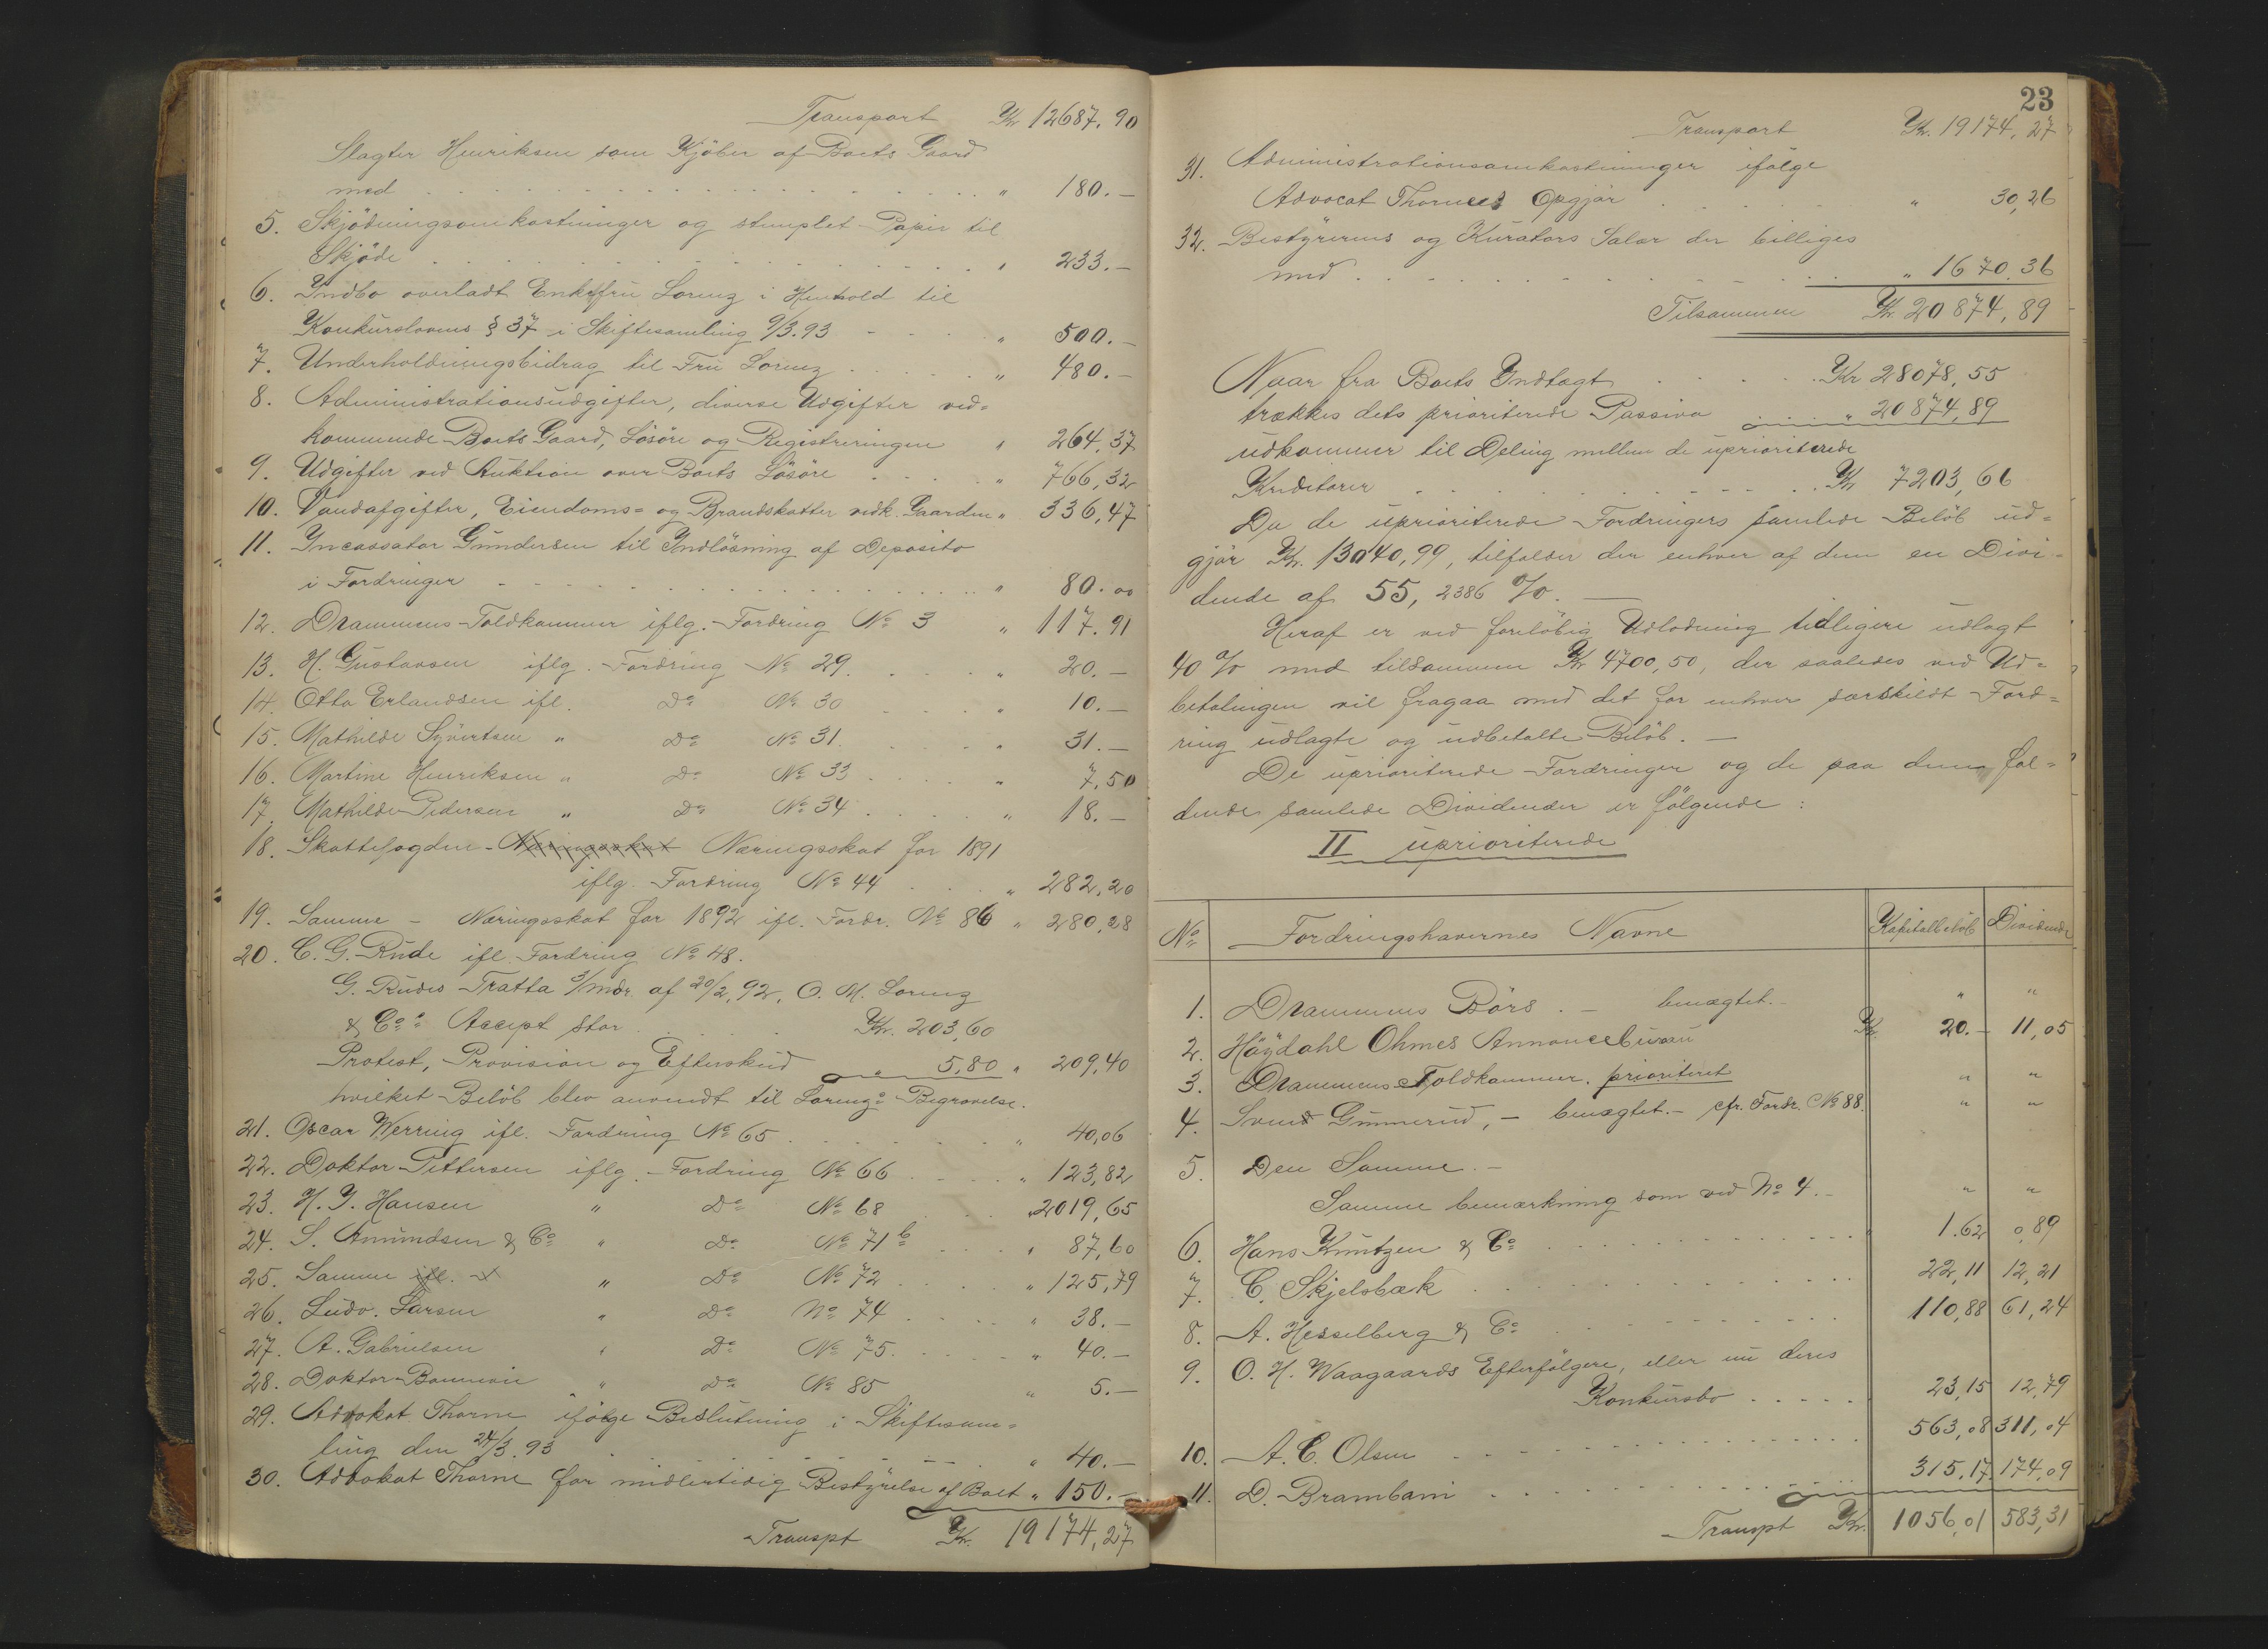 Transport Kr 12687,90
Slagter Henriksen som Kjøber af Boets Gaard
med " 180.-
5. Skjødningsomkostninger og stemplet Papir til
Skjøde " 233.-
6. Indbo overladt Enkefru Lorenz i Henhold til
Konkurslovens § 37 i Skiftesamling 9/3.93 " 500.-
7. Underholdningsbidrag til Fru Lorenz " 480.-
8. Administrationsudgifter, diverse Udgifter ved=
kommende Boets Gaard, Løsøre og Registreringen " 264,37
9. Udgifter ved Auktion over Boets Løsøre " 766,32
10. Vandafgifter, Eiendoms= og Brandskatter vedk. Gaarden " 336,47
11. Incassator Gundersen til Indløsning af Deposito
i Fordringer " 80.00
12. Drammens Toldkammer iflg. Fordring No 3 " 117.91
13. H. Gustavsen iflg. Fordring No 29. " 20.-
14. Otto Erlandsen ifl. Do No 30 " 10.-
15. Mathilde Syvertsen " Do No 31. " 31.-
16. Martine Henriksen " Do No 33 " 7,50
17. Mathilde Pedersen " Do No 34 " 18.-
18. Skattefogden - Næringsskat Næringsskat for 1891
iflg. Fordring No 44 " 282,20
19. Samme - Næringsskat for 1892 ifl. Fordr. No 86 " 280,28
20. C. G. Rude ifl. Fordring No 48.
G. Rudes Tratta 3/mdr. af 20/2.92, O. M. Lorenz
& Co: Accept stor Kr. 203,60
Protest, Provision og Efterskud " 5,80 " 209,40
hvilket Beløb blev anvendt til Lorenz's Begravelse.
21. Oscar Werring ifl. Fordring No 65 " 40,06
22. Doktor Pettersen iflg. Fordring No 66 " 123,82
23. H. J. Hansen " Do No 68 " 2019,65
24. S. Amundsen & Co " Do No 71 b " 87,60
25. Samme ifl. " Do No 72 " 125,79
26. Ludv. Larsen " Do No 74 " 38.-
27. A. Gabrielsen " Do No 75. " 40.-
28. Doktor " Do No 85 " 5.-
29. Advokat Thorne ifølge Beslutning i Skiftesam=
ling den 24/3.93 " 40.-
30. Advokat Thorne for midlertidig Bestyrelse af Boet " 150.-
Transpt Kr. 19174,27
23
Transport Kr. 19174,27
31. Administrationsomkostninger ifølge
Advocat Thornes Opgjør " 30,26
32. Bestyrerens og Kurators Salær der billiges
med " 1670.36
Tilsammen Kr. 20874,89
Naar fra Boets Indtægt Kr 28078,55
trækkes dets prioriterede Passiva " 20874,89
udkommer til Deling mellem de uprioriterede
Kreditorer Kr 7203,66
Da de uprioriterede Fordringers samlede Beløb ud=
gjør Kr. 13040,99, tilfalder der enhver af dem en Divi=
dende af 55,2386 %. -
Heraf er ved foreløbig Udlodning tidligere udlagt
40 % med tilsammen Kr 4700,50, der saaledes ved Ud=
betalingen vil fragaa med det for enhver særskildt Ford=
ring udlagte og udbetalte Beløb. -
De uprioriterede Fordringer og de paa dem fal=
dende samlede Dividender er følgende:
II uprioriterede
No Fordringshavernes Navne Kapitalbeløb Dividende
1. Drammens Børs. - benægtet. - " "
2. Høydahl Ohmes Annoncebureau Kr. 20.- 11,05
3. Drammens Toldkammer. prioriteret " "
4. Svend Gunnerud, - benægtet. - cfr. Fordr. No 88. " "
5. Den Samme. -
Samme bemærkning som ved No 4. - " "
6. Hans Knutzen & Co " 1.62 0,89
7. C. Skjelsbæk 22,11 12,21
8. A. Hesselberg & Co 110,88 61,24
9. O. H. Waagaards Efterfølgere, eller nu deres
Konkursbo 23,15 12,79
10. A. C. Olsen 563,08 311,04
11. D. Brambani 315,17 174,09
Transpt Kr. 1056,01 583,31